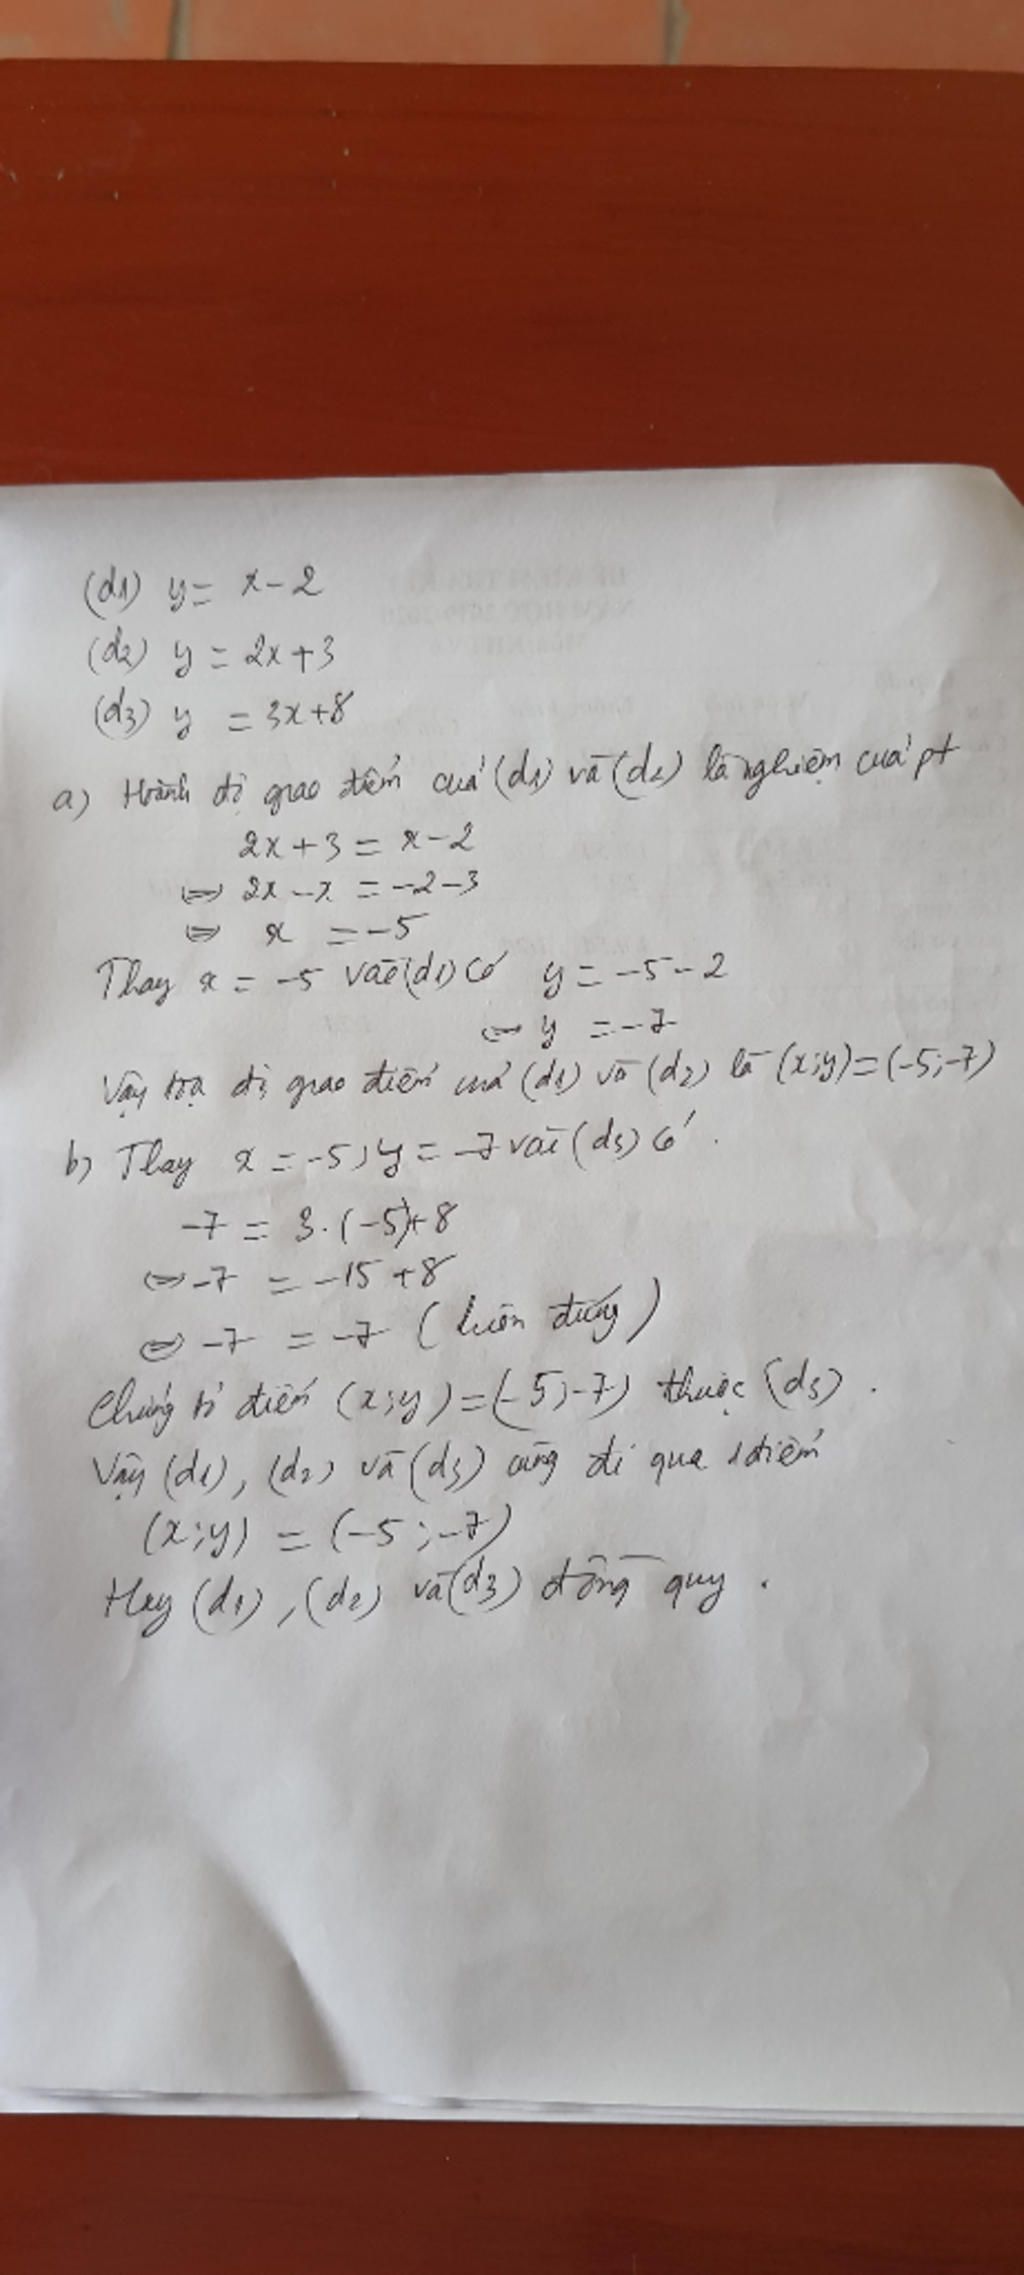 (d1) y = x - 2
(d2) y = 2x + 3
(d3) y = 3x + 8
a) Hoành độ giao điểm của (d1) và (d2) là nghiệm của pt
2x + 3 = x - 2
⇔ 2x - x = -2 - 3
⇔ x = -5
Thay x = -5 vào (d1) có y = -5 - 2
⇔ y = -7
Vậy toạ độ giao điểm của (d1) và (d2) là (x;y) = (-5;-7)
b) Thay x = -5; y = -7 vào (d3) có.
-7 = 3.(-5)+8
⇔ -7 = -15 + 8
⇔ -7 = -7 (luôn đúng)
Chứng tỏ điểm (x;y) = (-5;-7) thuộc (d3).
Vậy (d1), (d2) và (d3) cùng đi qua 1 điểm
(x;y) = (-5;-7)
Hay (d1), (d2) và (d3) đồng quy.